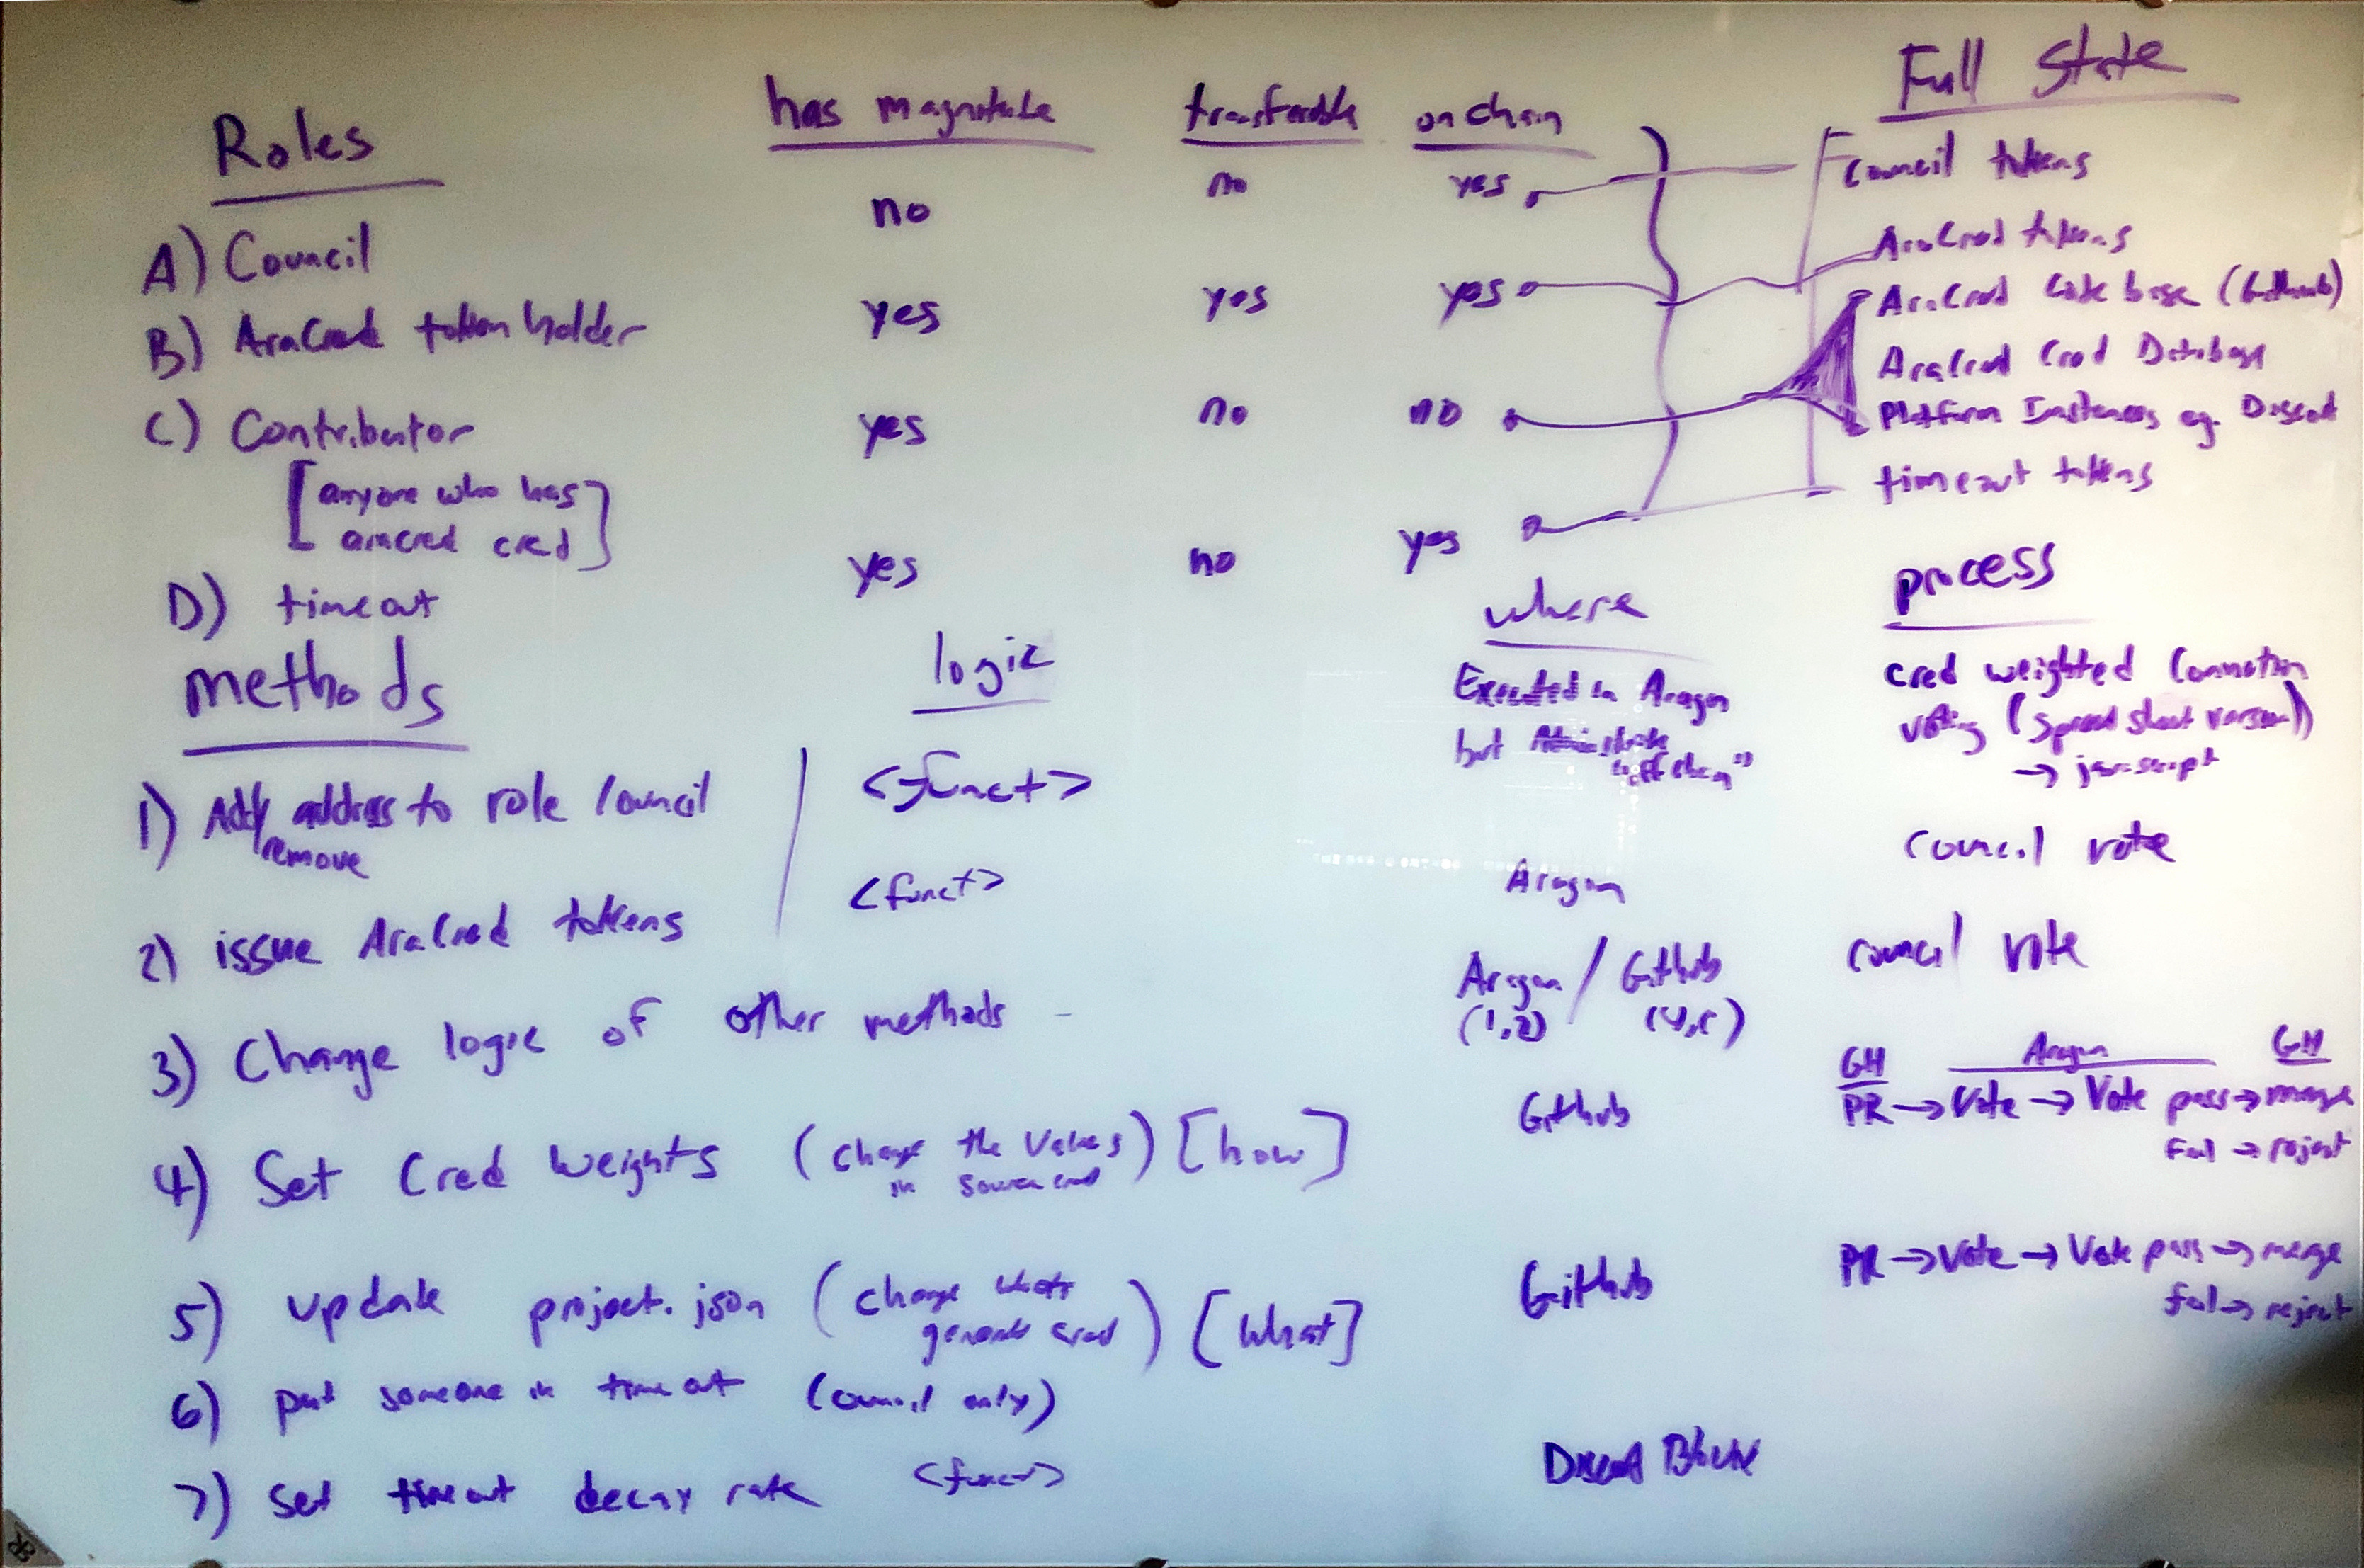 Full State
Roles has magnitude transferable on chain
A) Council no no yes
Council tokens
B) AraCred token holder yes yes yes
AraCred tokens
AraCred Code base (Github)
AraCred Cred Database
C) Contributor yes no no
Platform Instances eg. Discord
[anyone who has
aracred cred]
timeout tokens
D) timeout yes no yes
methods logic where process
Executed in Aragon
but "off chain"
cred weighted
voting (Spreadsheet version)
→ javascript
1) Add/ address to role Council <funct>
remove
Council vote
2) issue AraCred tokens <funct> Aragon
3) Change logic of other methods - Aragon / Github council vote
GH Aragon GH
4) Set Cred Weights (change the values [how] Github PR → Vote → Vote pass → merge
in sourcecred)
fail → reject
5) update project.json (change whats [what] Github PR → Vote → Vote pass → merge
generates cred)
fail → reject
6) put someone in timeout (council only)
7) set timeout decay rate <funct>